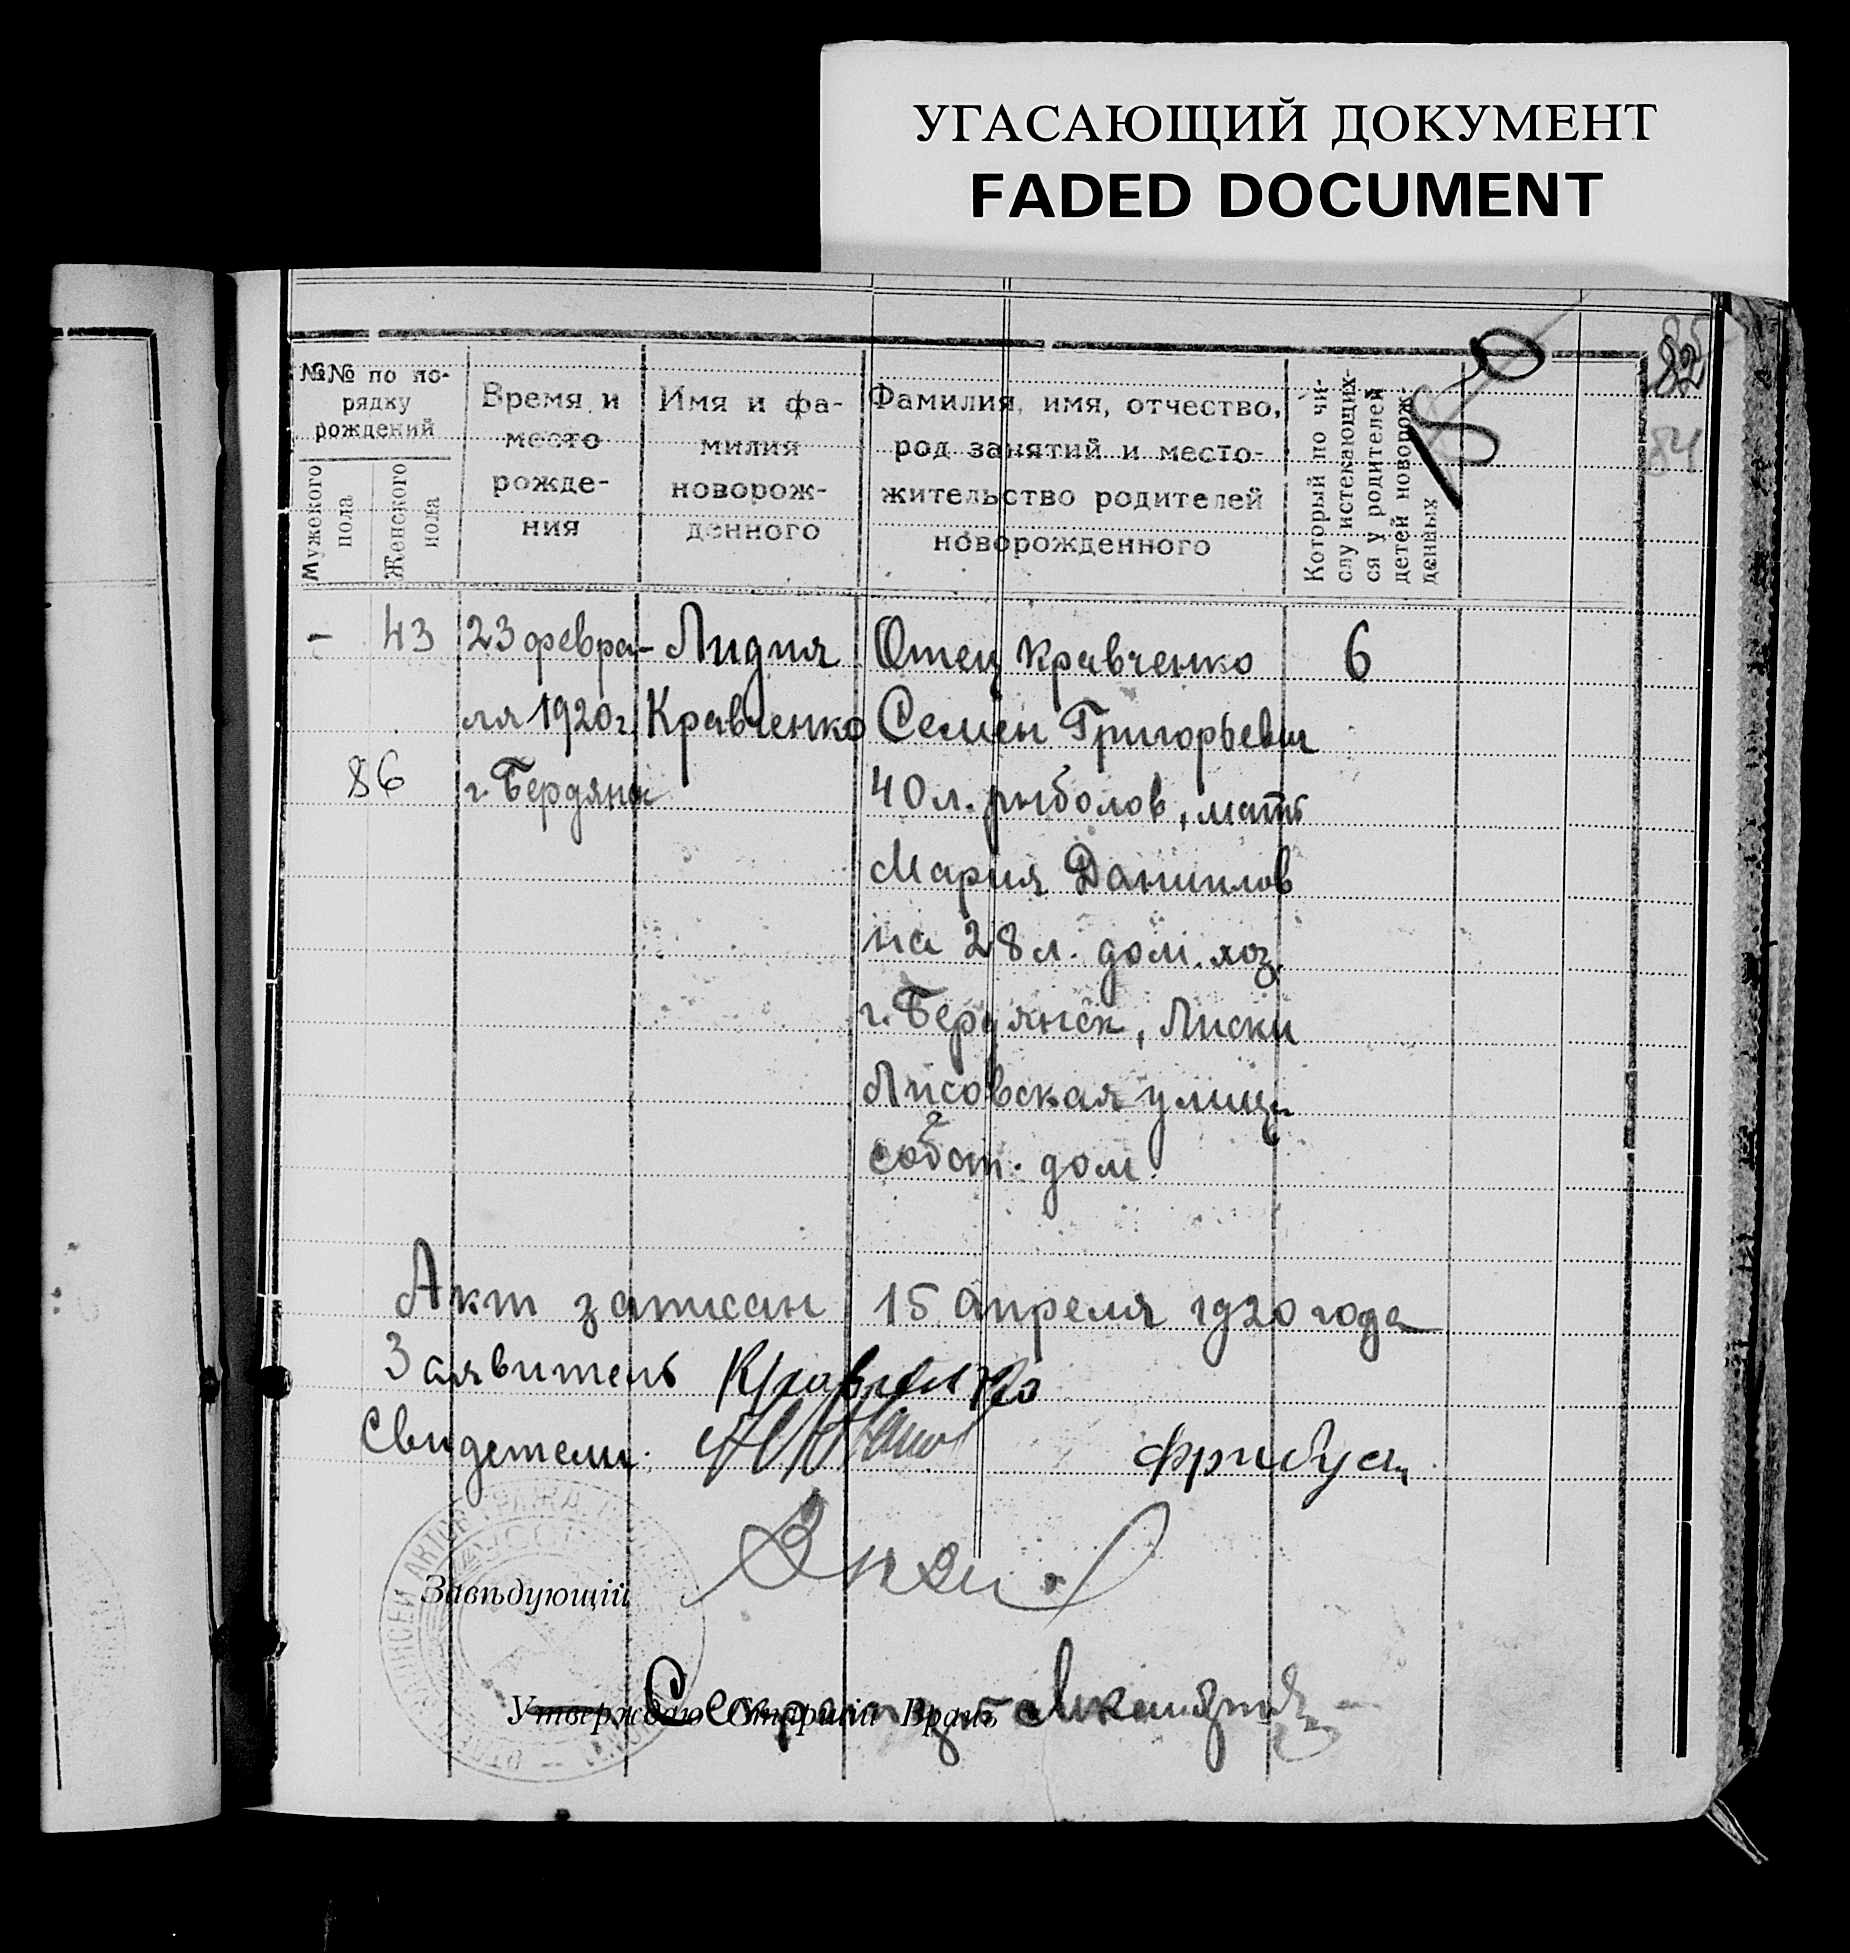 УГАСАЮЩИЙ ДОКУМЕНТ
FADED DOCUMENT
82
84
№№ по по-
рядку
рождений
Мужекого
пола
Женского
пола
Время и
место
рожде-
ния
Имя и фа-
милия
новорож-
денного
Фамилия, имя, отчество,
род занятий и место-
жительство родителей
новорожденного
Который по чи-
слу истекающих-
ся у родителей
детей новорож-
денных
- 43 23 февра- Лидия Отец Кравченко 6
ля 1920 г. Кравченко Семен Григорьевич
86 г. Бердянск 40 л. рыболов, мать
Мария Данилов
на 28 л. дом. хоз.
г. Бердянск, Лиски
Лисовская улица
собст. дом.
Акт записан 15 апреля 1920 года
Заявитель Кравченко
Свидетели: Фрибус
Завѣдующій
Утверждаю Старшій Врачъ
Секретарь